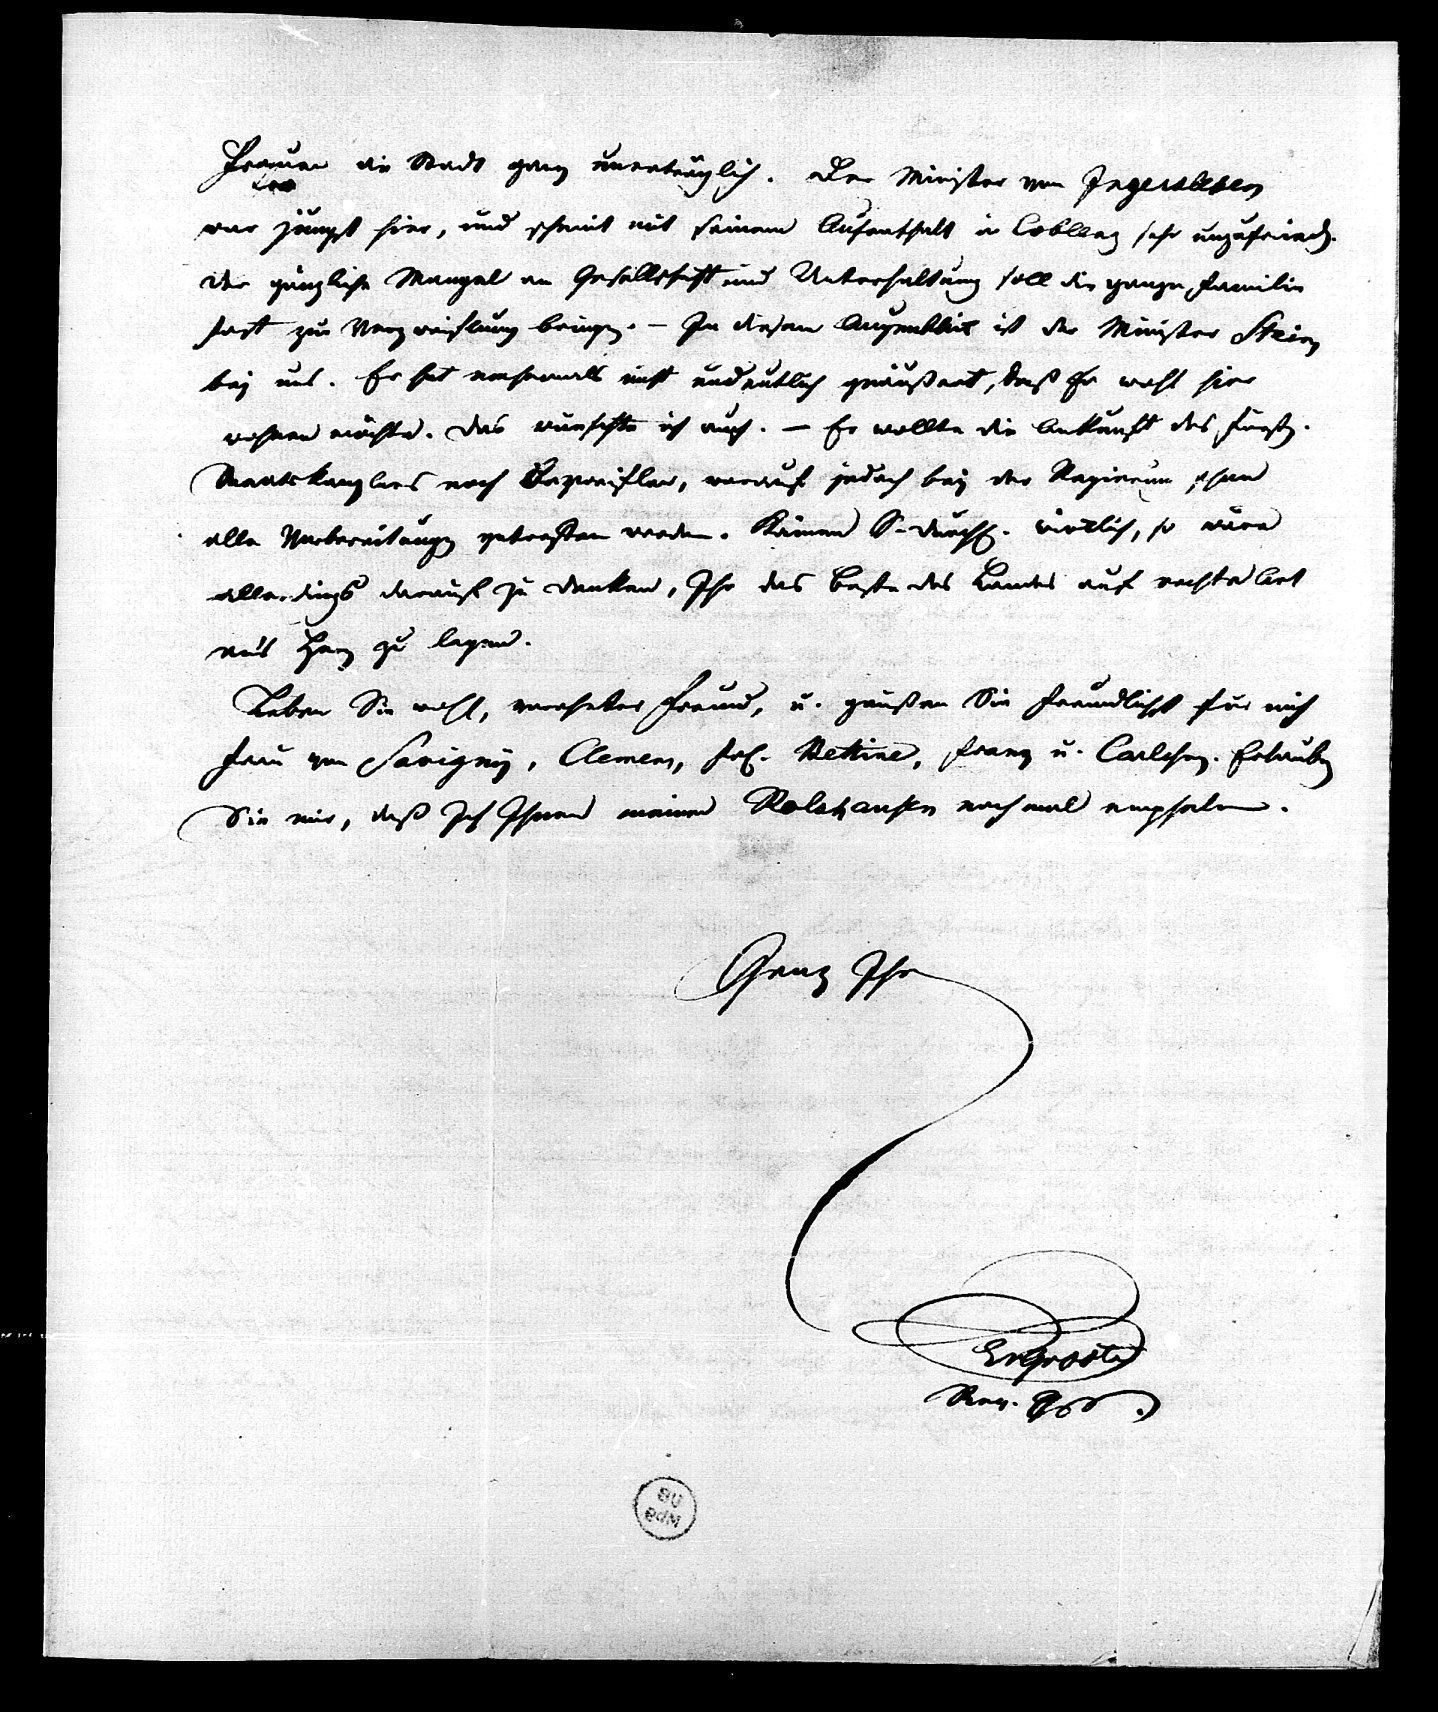 Frauen die Stadt ganz unerträglich. Der Minister von Ingersleben
war jüngst hier, und scheint mit seinem Aufenthalt in Coblenz sehr unzufried.
der gänzliche Mangel an Gesellschaft und Unterhaltung soll die ganze Familie
fast zur Verzweiflung bringen. – In diesem Augenblick ist der Minister Stein
bey uns. Er hat mehrmals nicht undeutlich geäußert, daß Er wohl hier
wohnen möchte. Das wünschte ich auch. – Er wollte die Ankunft des Fürsten
Staatskanzlers noch bezweiflen, worauf jedoch bey der Regierung schon
alle Vorbereitungen getroffen werden. Kämen S. Durchl. wirklich, so wäre
allerdings darauf zu denken, Ihr das Beste des Landes auf rechte Art
an's Herz zu legen.
Leben Sie wohl, verehrter Freund, u. grüßen Sie freundlichst für mich
Frau von Savigny, Clemens, Frl. Bettine, Franz u. Carlchen. Erlauben
Sie mir, daß Ich Ihnen meinen Rolshausen nochmal empfehlen.
Ganz Ihr
EvGroote